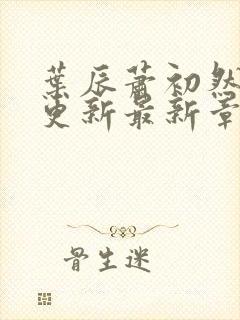 葉辰蕭初然
更新最新章
骨生迷